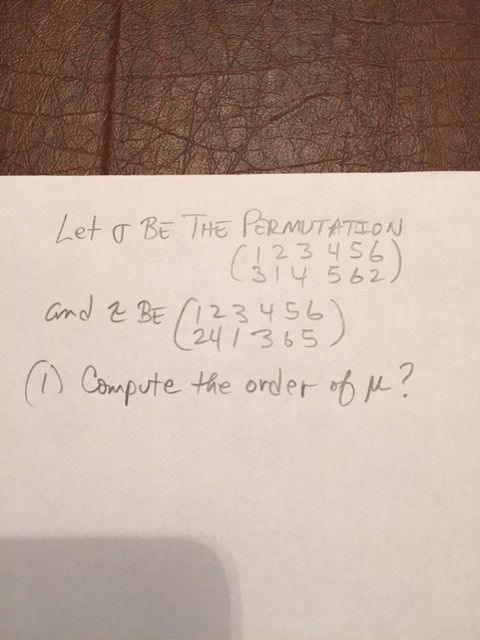 Let σ BE THE PERMUTATION
(1 2 3 4 5 6
3 1 4 5 6 2)
and τ BE (1 2 3 4 5 6
2 4 1 3 6 5)
(1) Compute the order of μ?